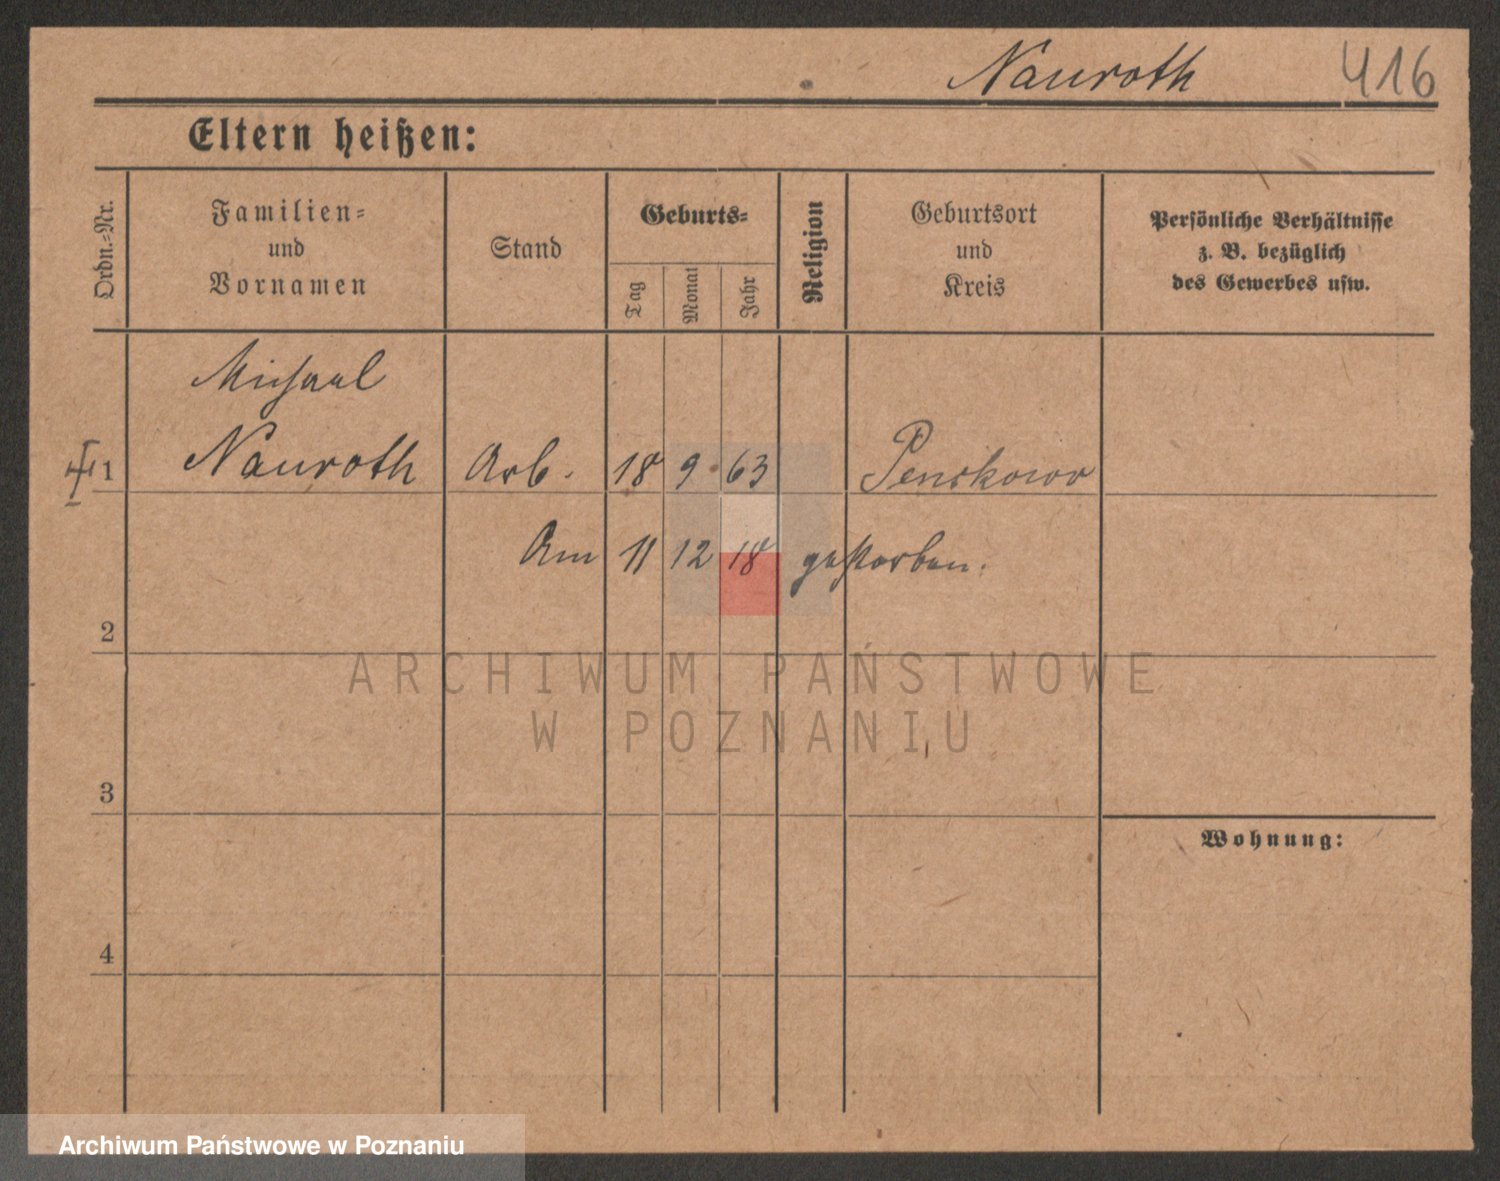 Nauroth 416
Eltern heißen:
Ordn.-Nr.
Familien-
und
Vornamen
Stand
Geburts-
Tag
Monat
Jahr
Religion
Geburtsort
und
Kreis
Persönliche Verhältnisse
z. B. bezüglich
des Gewerbes usw.
Michael
1 Nauroth Arb. 18 9 63 Penskowo
Am 11 12 18 gestorben.
2
ARCHIWUM PAŃSTWOWE
W POZNANIU
3
Wohnung:
4
Archiwum Państwowe w Poznaniu